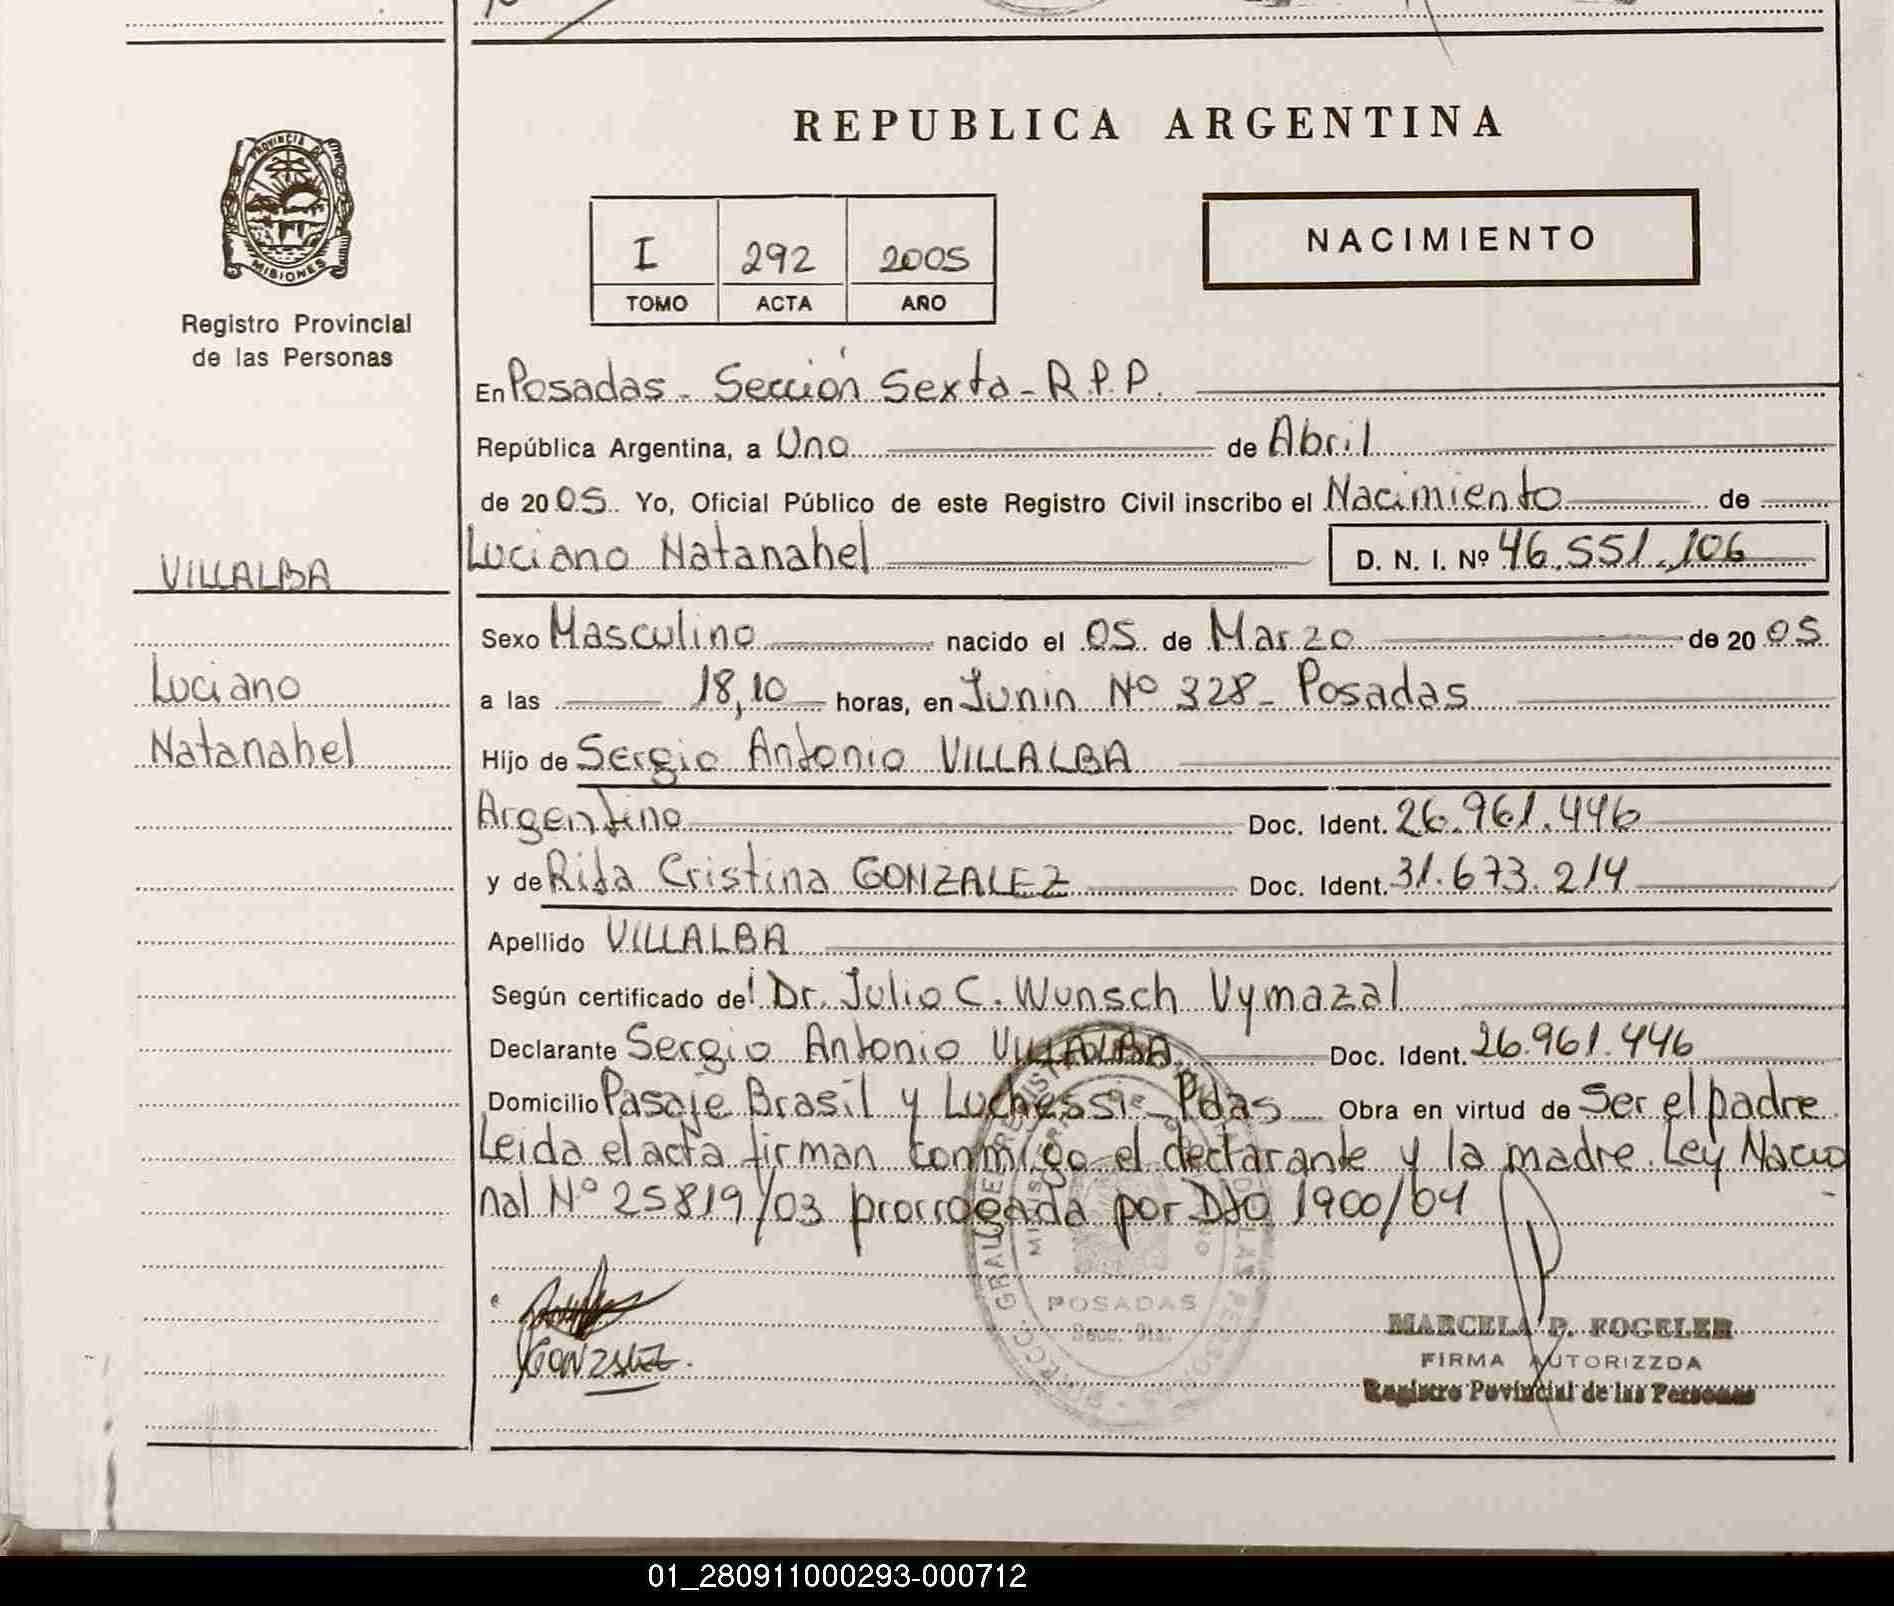 REPUBLICA ARGENTINA
PROVINCIA DE
MISIONES
Registro Provincial
de las Personas
I 292 2005
TOMO ACTA AÑO
NACIMIENTO
En Posadas - Sección Sexta - R.P.P.
República Argentina, a Uno de Abril
de 2005. Yo, Oficial Público de este Registro Civil inscribo el Nacimiento de
VILLALBA
Luciano Natanahel D. N. I. Nº 46.551.106
Sexo Masculino nacido el 05 de Marzo de 2005
Luciano
a las 18,10 horas, en Junin Nº 328 - Posadas
Natanahel
Hijo de Sergio Antonio VILLALBA
Argentino Doc. Ident. 26.961.446
y de Rita Cristina GONZALEZ Doc. Ident. 31.673.214
Apellido VILLALBA
Según certificado del Dr. Julio C. Wunsch Vymazal
Declarante Sergio Antonio VILLALBA Doc. Ident. 26.961.446
Domicilio Pasaje Brasil y Luchessi - Pdas Obra en virtud de Ser el padre
Leida el acta firman conmigo el declarante y la madre. Ley Nacio
nal Nº 25819/03 prorrogada por Dto 1900/04
GONZALEZ.
POSADAS
MARCELA P. KOGELER
FIRMA AUTORIZZDA
Registro Povincial de las Personas
01_280911000293-000712